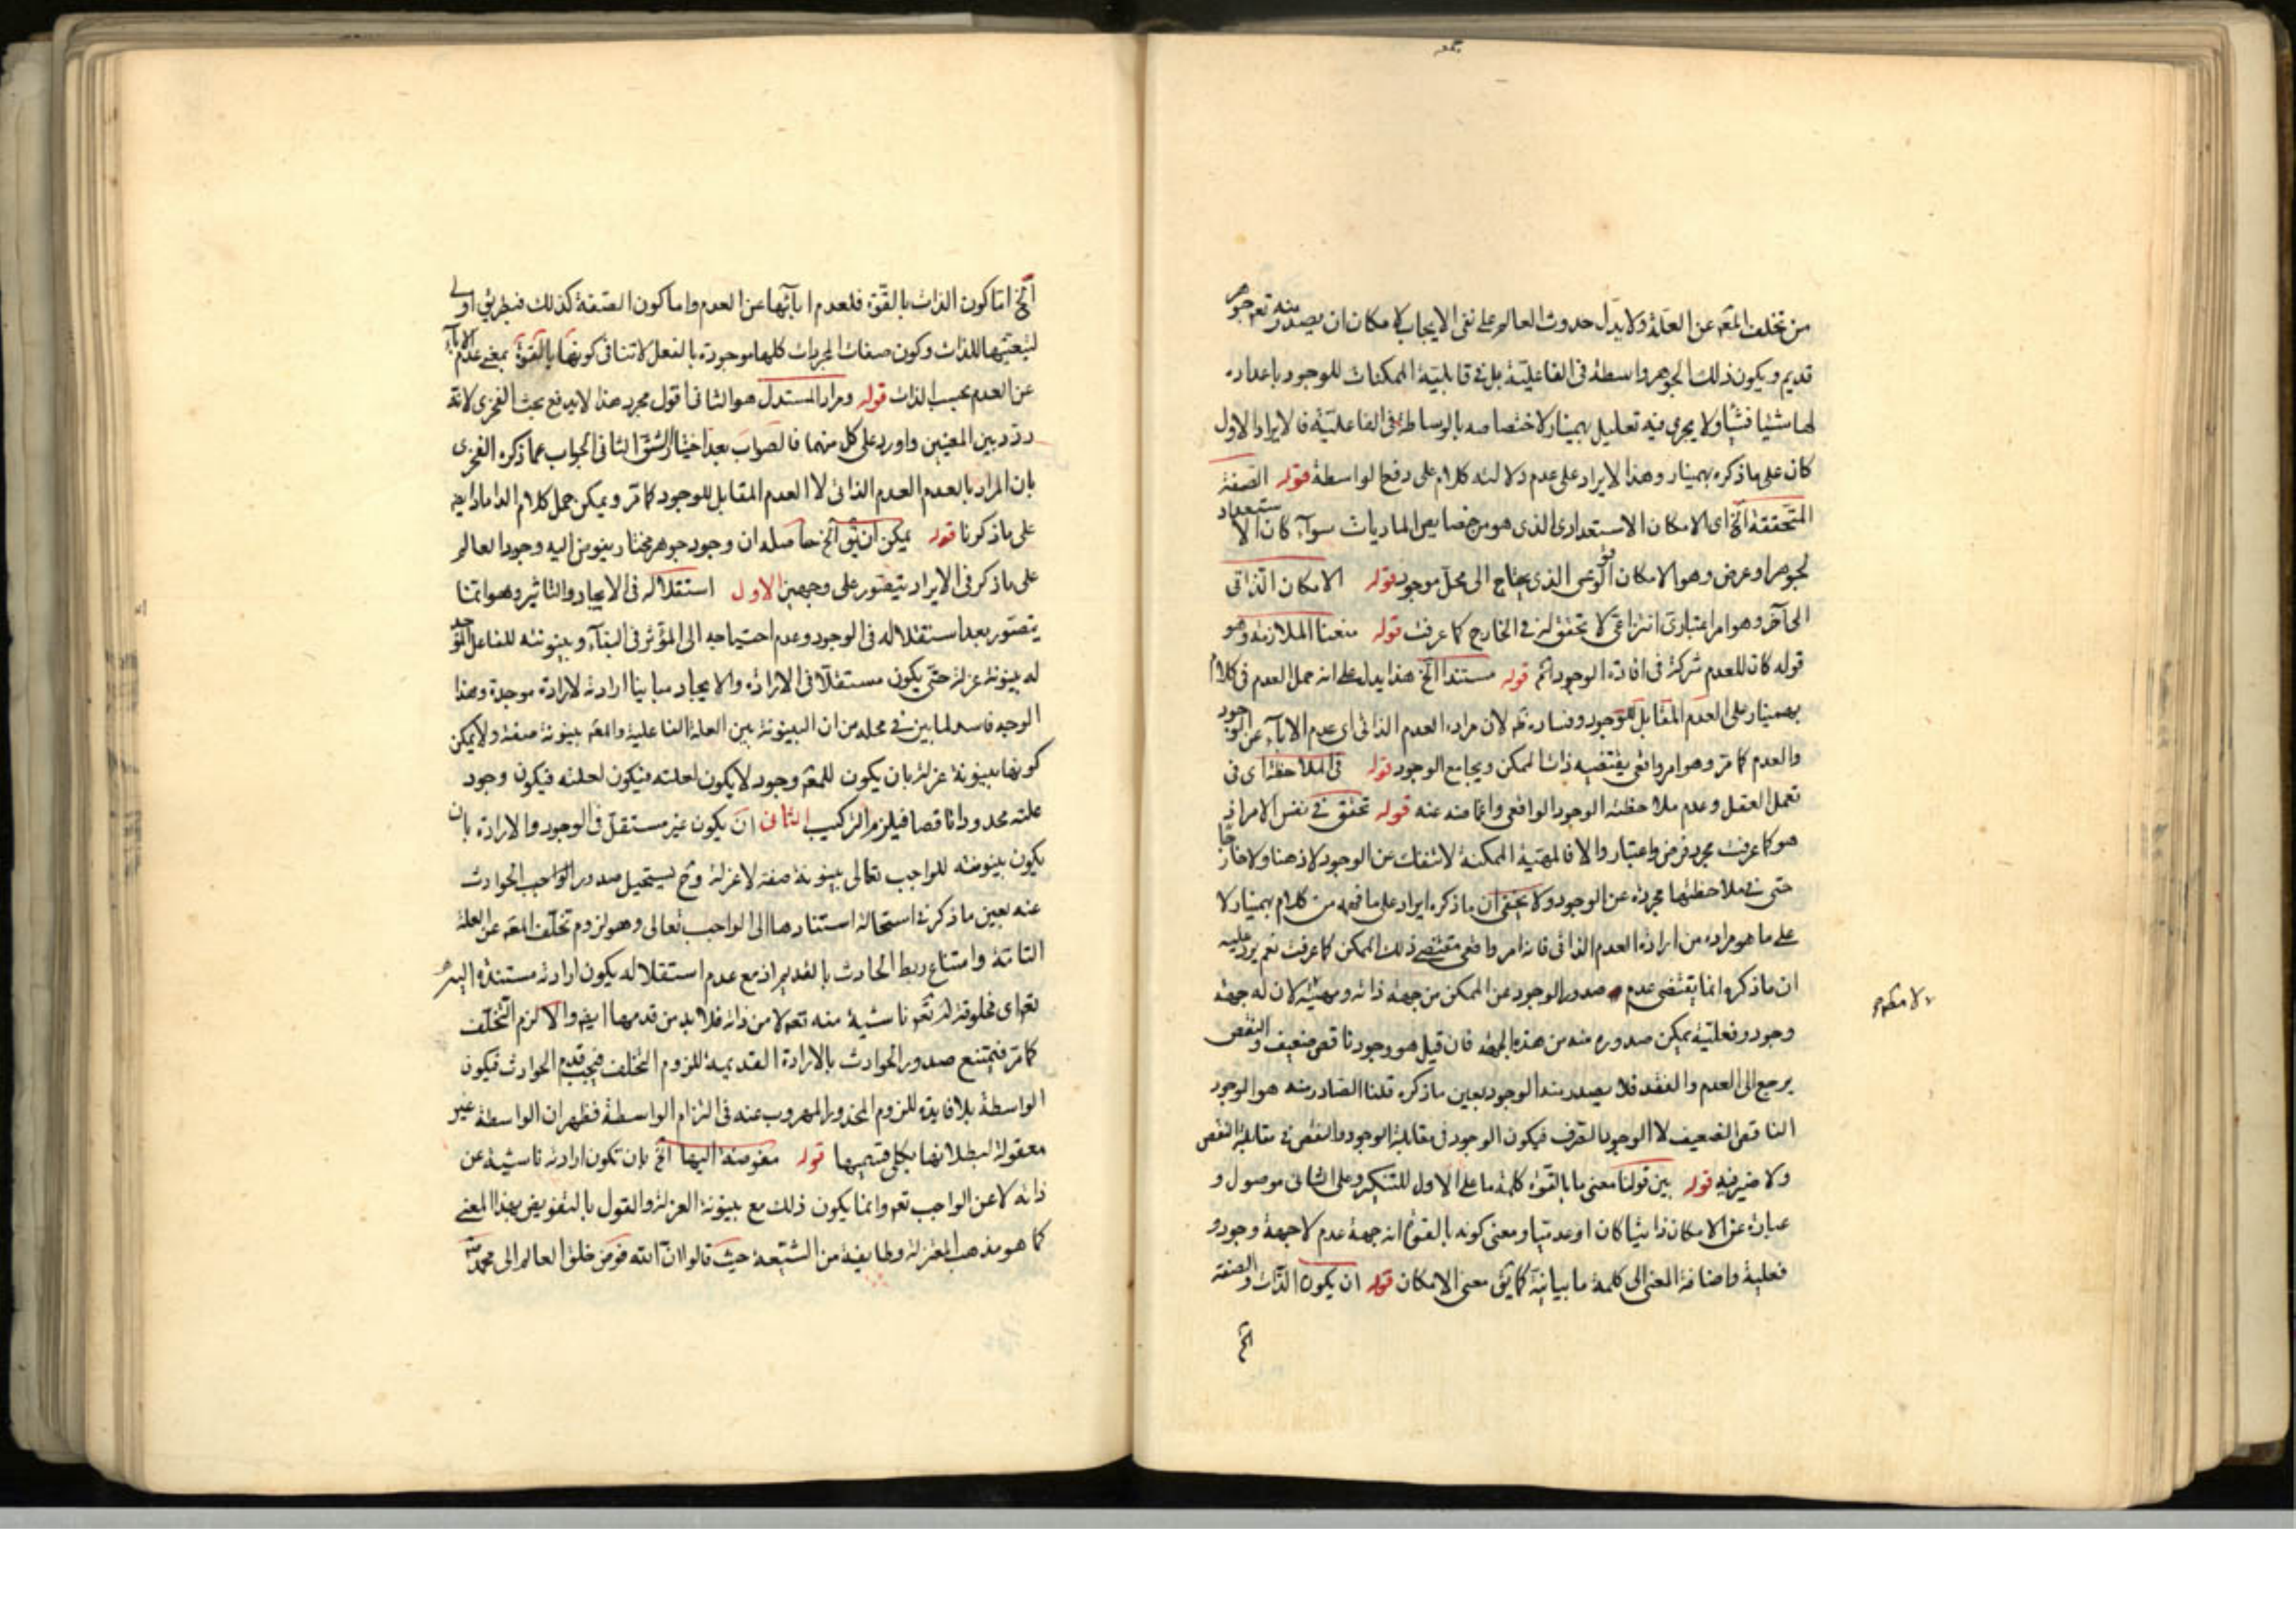 من تخلف المعه عن العلة ولا يدل حدوث العالم على نفى الايجاب لامكان ان يصدر منه تعم جوهر
قديم ويكون ذلك الجوهر واسطة فى الفاعلية بل فى قابلية الممكنات للوجود باعداده
لها شيئا فشيئا ولا يجرى فيه تعليل بهمنيار لاختصاصه بالوساطة فى الفاعلية فالايراد الاول
كان على ما ذكره بهمنيار وهذا الايراد على عدم دلالته كلام على دفع الواسطة قوله الصفة
المتحققة آلخ اى الامكان الاستعدادى الذى هو من خصايص الماديات سوآء كان الاستعداد
لجوهر او عرض وهو الامكان الوقوعى الذى يحتاج الى محل موجود قوله الامكان الذاتى
الى آخره وهو امر اعتبارى انتزاعى لا تحقق له فى الخارج كما عرفت قوله منعنا الملازمة وهو
قوله كان للعدم شركة فى افادة الوجود اثم قوله مستندا آلخ هذا يدل على انه حمل العدم فى كلام
بهمنيار على العدم المقابل للوجود وفساده ظه لان مراده العدم الذاتى اى عدم الاباء عن الوجود
والعدم كما مر وهو امر واقعى يقتضيه ذات الممكن ويجامع الوجود قوله فى الملاحظة اى فى
تعمل العقل وعدم ملاحظة الوجود الواقعى واغماضه عنه قوله تحقق فى نفس الامر اذ
هو كما عرفت مجرد فرض واعتبار والا فالمهية الممكنة لا تنفك عن الوجود لا ذهنا ولا خارجا
حتى فى ملاحظتها مجردة عن الوجود ولا يخفى ان ما ذكره ايراد على ما فهمه من كلام بهمنيار لا
على ما هو مراده من ارادة العدم الذاتى فانه امر واقعى مقتضى ذلك الممكن كما عرفت نعم يرد عليه
ان ما ذكره انما يقتضى عدم صدور الوجود عن الممكن من جهة ذاته ومهيته لان له جهة
وجود وفعلية يمكن صدوره منه من هذه الجهة فان قيل هو وجود ناقص ضعيف والنقص
يرجع الى العدم والفقد فلا يصدر منه الوجود بعين ما ذكره قلنا الصادر منه هو الوجود
الناقص الضعيف لا الوجود الصرف فيكون الوجود فى مقابلة الوجود والنقص فى مقابلة النقص
ولا ضير فيه قوله بين قولنا معنى ما بالقوة كلمة ما على الاول للتنكير وعلى الثانى موصول و
عبارة عن الامكان ذاتيا كان او عدميا ومعنى كونه بالقوة انه جهة عدم لا جهة وجود و
فعلية واضافة المعنى الى كلمة ما بيانية كما يق معنى الامكان قوله ان يكون الذات والصفة
الخ
آلخ اما كون الذات بالقوة فلعدم ابائها عن العدم واما كون الصفة كذلك فبطريق اولى
لتبعيتها للذات وكون صفات المجردات كلها موجودة بالفعل لا تنافى كونها بالقوة بمعنى عدم الاباء
عن العدم بحسب الذات قوله ومراد المستدل هو الثانى اقول مجرد هذا لا يدفع بحث الفخرى لانه
ردد بين المعنيين واورد على كل منهما فالصواب بعد اختيار الشق الثانى الجواب عما ذكره الفخرى
بان المراد بالعدم العدم الذاتى لا العدم المقابل للوجود كما مر ويمكن حمل كلام الداماد ايضا
على ما ذكرنا قوله يمكن ان يق آلخ حاصله ان وجود جوهر مختار يفوض اليه وجود العالم
على ما ذكر فى الايراد يتصور على وجهين الاول استقلاله فى الايجاد والتاثير وهو انما
يتصور بعد استقلاله فى الوجود وعدم احتياجه الى المؤثر فى البقآء وبينونته للفاعل الموجد
له بينونة عزلة حتى يكون مستقلا فى الارادة والايجاد مباينا ارادته لارادة موجده وهذا
الوجه فاسد لما بين فى محله من ان البينونة بين العلة الفاعلية والمعه بينونة صفة ولا يمكن
كونها بينونة عزلة بان يكون للمعه وجود لا يكون لعلته فيكون لعلته فيكون وجود
علته محدودا ناقصا فيلزم التركيب الثانى ان يكون غير مستقل فى الوجود والارادة بان
يكون بينونته للواجب تعالى بينونة صفة لا عزلة وح يستحيل صدور الواجب الحوادث
عنه بعين ما ذكر فى استحالة استنادها الى الواجب تعالى وهو لزوم تخلف المعه عن العلة
التامة وامتناع ربط الحادث بالقديم اذ مع عدم استقلاله يكون ارادته مستندة اليه
تعم اى مخلوقة له تعم ناشية منه تعم لا من ذاته فلا بد من قدمها ايضا والا لزم التخلف
كما مر فيمتنع صدور الحوادث بالارادة القديمة للزوم التخلف فيجب قدم الحوادث فيكون
الواسطة بلا فايدة للزوم المحذور المهروب عنه فى التزام الواسطة فظهر ان الواسطة غير
معقولة لبطلانها بكلى قسميها قوله مفوضة اليها آلخ بان تكون ارادته ناشية عن
ذاته لا عن الواجب تعم وانما يكون ذلك مع بينونة العزلة والقول بالتفويض بهذا المعنى
كما هو مذهب المعتزلة وطايفة من الشيعة حيث قالوا ان الله فوض خلق العالم الى محمد